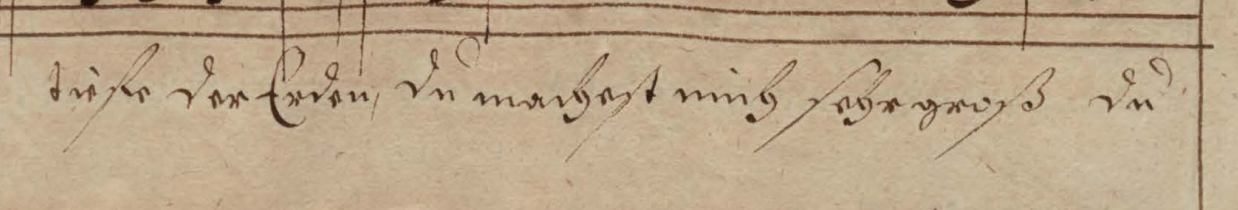 tieffe der Erden, du machest mich sehr groß du